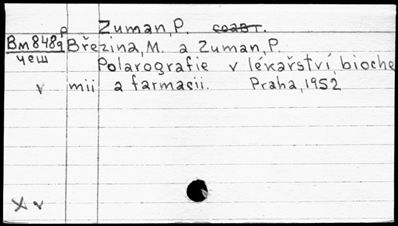 Zuman, P. соавт.
р
Вм8489 Březina, M. a Zuman, P.
чеш Polarografie v lékařství, bioche
v mii a farmacii. Praha, 1952
X v